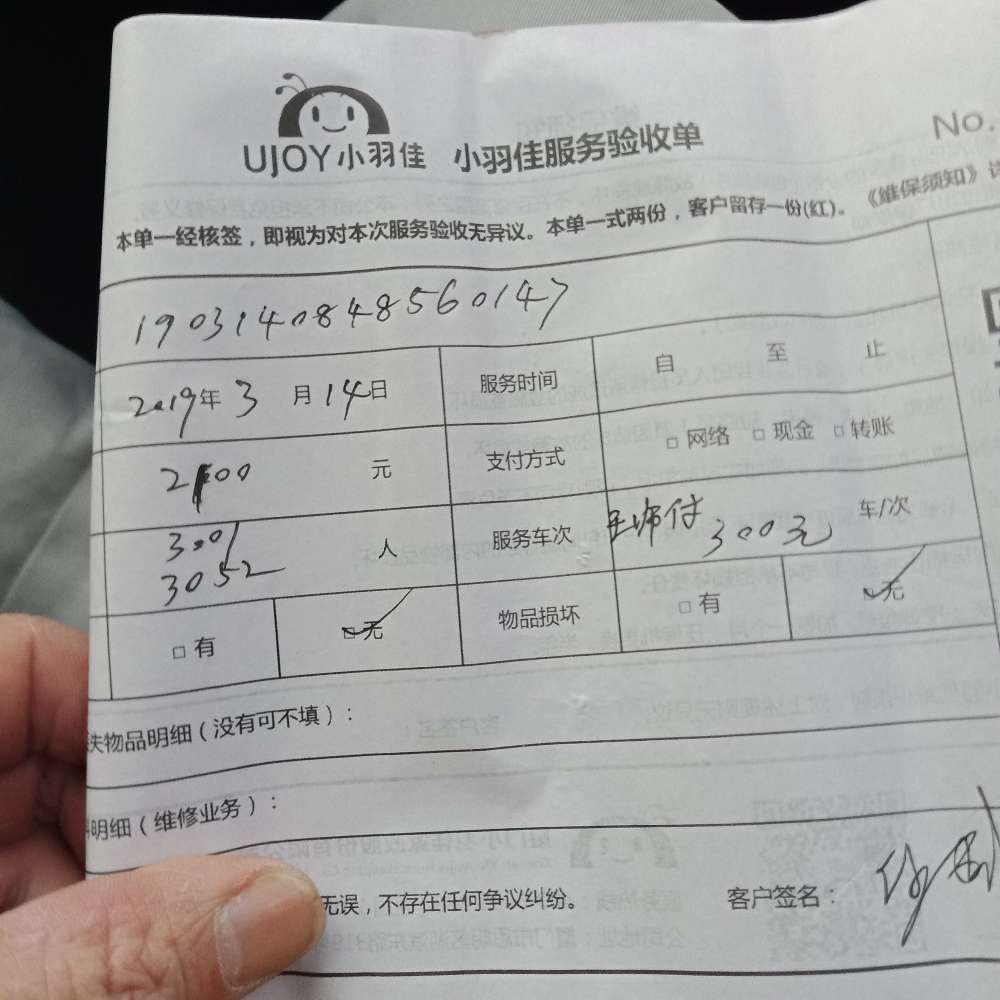 UJOY小羽佳 小羽佳服务验收单
No.
本单一经核签，即视为对本次服务验收无异议。本单一式两份，客户留存一份(红)。《维保须知》
1903140848560147
2019年3月14日 服务时间 自 至 止
元 支付方式 □ 网络 □ 现金 □ 转账
3001
3052 人 服务车次 300元 车/次
□ 有 □ 无 物品损坏 □ 有 □ 无
失物品明细（没有可不填）：
明细（维修业务）：
无误，不存在任何争议纠纷。 客户签名：